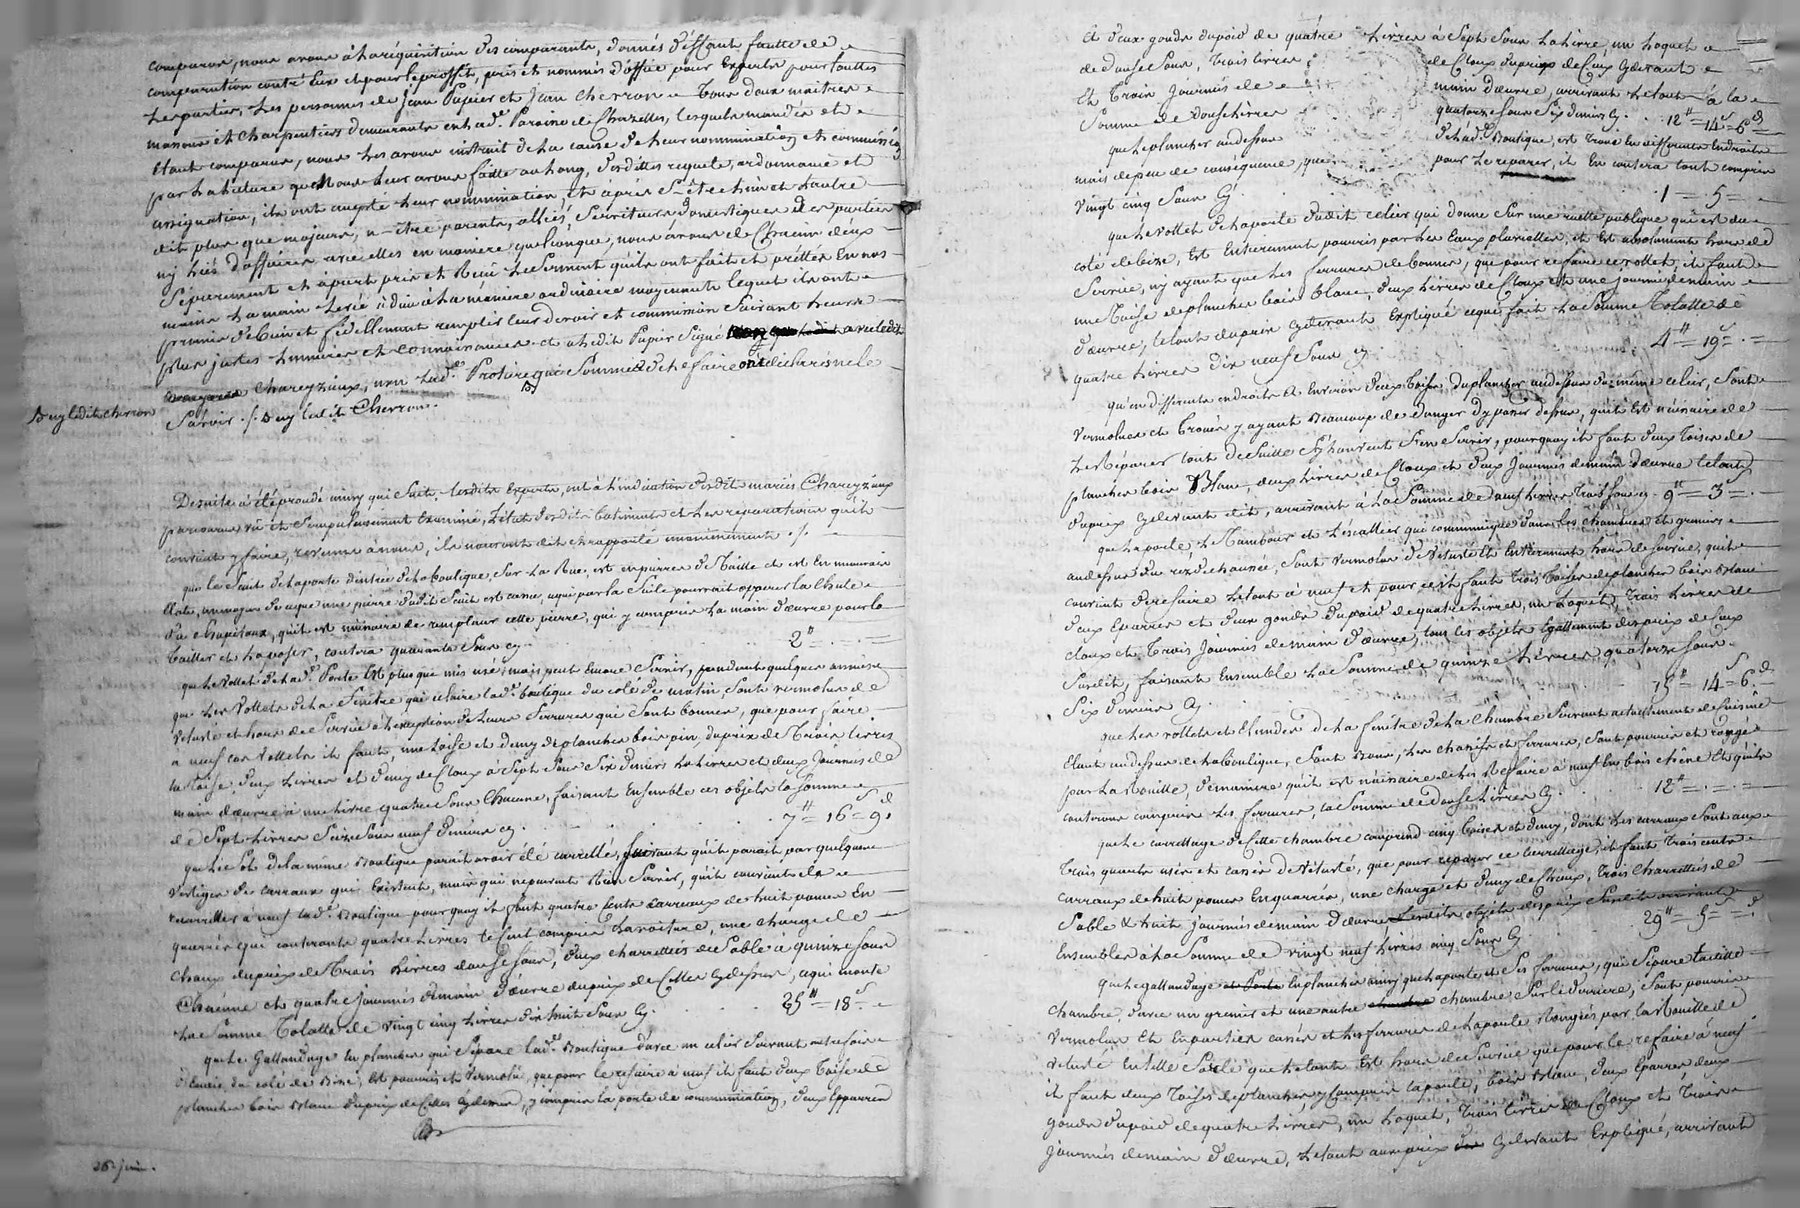 comparus, nous avons à la réquisition des comparants, donnés déffaut fautte de
comparution contre Eux et pour le proffit, pris et nommés d'office pour Experts pour touttes
les parties, les personnes de Jean Papier et Jean Cherron Tous deux maitres
massons et charpentiers demeurants en lad.e Paroisse de Chazelles, lesquels mandés et
Etant comparus, nous les avons instruit de la cause de leur nommination et commission
par la lecture que Nous leur avons faitte au long, desdittes requete, ordonnance et
assignation, ils ont accepté leur nommination, et après s'être l'un et l'autre
dit plus que majeurs, n'être parents, alliés, Serviteurs Domestiques des parties
ny liés d'affaires avec elles en maniere quelconque, nous avons de Chacun deux
Séparement et à part pris et Reçu le Serment qu'ils ont fait et prêttés En nos
mains la main levée à dieu à la maniere ordinaire moyennant lequel ils ont
promis de bien et fidellement remplir leur devoir et commission Suivant leurs
plus justes lumieres et connaissances et a ledit Papier Signé avec ledit
Chareyzieux, non lad.e Protiere que Sommés de le faire ont déclarés ne le
Savoir ./. Duy ledit Cherron.
Duy ledit cherron
De suite a été procédé ainsy qui Suit, lesdits Experts, ont à l'indication desdits mariés Chareyzieux
parcourus vu et Scrupuleusement Examiné, l'état desdits batiments et les reparations qu'il
convient y faire, revenus à nous, ils nous ont dit et rapporté unanimement ./.
que le Seuit de la porte d'entrée de la boutique, Sur la Rue, est en pierres de Taille et est En mauvais
Etat, au moyen de ce que une pierre dudit Seuit est cassée, ce qui par la Suite pourrait opperer la chute
du Chapiteaux, qu'il est nécessaire de remplacer cette pierre, qui y compris la main d'oeuvre pour la
tailler et la poser, coutera quarante Sous cy. 2#
que le vollet de lad.e Porte est plus que mis usé, mais peut encore Servir, pendant quelques années
que les vollets de la fenêtre qui eclaire lad.e boutique du coté de matin Sont vermolus de
vétusté et hors de Service à l'exception de leurs ferrures qui Sont bonnes, que pour faire
a neuf ces vollets il faut, une toise et demy de plancher bois pin, du prix de Trois livres
la toise, deux livres et demy de Cloux à Sept Sous Six deniers la livre et deux Journées de
main d'oeuvre à une livre quatre Sous Chacune, faisant Ensemble ces objets la Somme
de Sept Livres Seize Sous neuf deniers cy. 7# = 16 s = 9 d
que le Sol de la même Boutique parait avoir été carrellé, Suivant qu'il parait par quelques
vestiges de carraux qui Existent, mais qui ne peuvent Rien Servir, qu'il convient de
recarreller à neuf lad.e Boutique pour quoy il faut quatre Cents Carreaux de huit pouces En
quarrés qui couteronts quatre Livres le Cent compris la voiture, une charge de
chaux du prix de Trois Livres douze Sous, deux charretées de Sable à quinze Sous
Chacune et quatre journées de main d'oeuvre du prix de Celles cy dessus, ce qui monte
La Somme Totalle de vingt cinq Livres dix huit Sous Cy. 25# = 18 s
que le Gallandage En planches qui Sépare lad.e Boutique d'avec un celier Suivant autrefois
d'Ecurie du coté de Bize, Est pourris et vermolu, que pour le refaire à neuf il faut deux Toise de
plancher bois Blanc du prix de Celles cy devant, y compris la porte de communication, deux Epparres
26 juin.
Et deux gonds du poid de quatre Livres à Sept Sous La Livre, un Loquet
de douze Sous, Trois livres de Cloux du prix de Ceux cy devant
Et Trois Journées de main d'oeuvre, arrivant le tout à la
Somme de Douze Livres quatorze Sous Six deniers Cy. 12# = 14 s = 6 d
que le plancher au dessus de lad.e Boutique, est Troué En differents Endroits
mais de peu de conséquence, que pour le reparer, il En coutera tout compris
vingt cinq Sous Cy 1 = 5 =
que le vollet de la porte dudit celier qui donne Sur une ruette publique qui est du
coté de bize, Est Entierement pourris par les Eaux pluvialles, et est absolument hors de
Service, n'y ayant que les ferrures de bonnes, que pour refaire ce vollet, il faut
une Toise de plancher bois blanc, deux livres de Cloux et une journée de main
d'oeuvre, le tout du prix cy devant Expliqué ce qui fait la Somme Totalle de
quatre Livres dix neuf Sous cy 4# = 19 s
qu'en differents endroits et Environ deux toises, du plancher au dessus du même celier, Sont
vermolues et troués y ayant Beaucoup de danger d'y passer dessus, qu'il est nécessaire de
les Réparer tout de Suitte Si l'on veut S'en Servir, pourquoy il faut deux Toises de
plancher bois Blanc, deux Livres de Cloux et deux Journées de main d'oeuvre le tout
du prix cy devant dit, arrivant à la Somme de neuf Livres Trois Sous cy. 9# = 3 s
que la porte, le Tambour et L'escallier qui communique dans les chambres et greniers
au dessus du rez de chaussée, Sont vermolus de Vétusté et Entierement hors de Service, qu'il
convient de refaire le tout à neuf et pour ce il faut trois toises de plancher bois blanc
deux Eparres et deux gonds du poid de quatre Livres, un Loquet, Trois Livres de
cloux et Trois Journées de main d'oeuvre, tous les objets Egallement du prix de ceux
Susdits, faisant Ensemble La Somme de quinze Livres quatorze Sous
Six deniers Cy. 15# = 14 s = 6 d
que les vollets et Chassis de la fenêtre de la Chambre Servant actuellement de cuisine
Etant au dessus de la boutique, Sont Bons, les chassis et ferrures, Sont pourris et rongés
par la Rouille, de maniere qu'il est nécessaire de les Refaire à neuf En bois chêne Et qu'ils
couteront compris les ferrures, la Somme de Douze Livres Cy. 12# = . = .
que le carrellage de Cette chambre comprend cinq toises et demy, dont Les carraux Sont aux
Trois quarts usés et cassés de vétusté, que pour reparer ce carrellage, il faut Trois cents
carraux de huit pouces En quarrés, une charge et demy de Chaux, Trois Charretées de
Sable & huit journées de main d'oeuvre
Ensembles à la Somme de vingt neuf Livres cinq Sous Cy. 29# = 5 s
que le gallandage En planches ainsy que la porte et Ses ferrures, qui Sépare laditte
Chambre, d'avec un grenier et une autre chambre Sur le derriere, Sont pourris
vermolus Et En parties cassés et les ferrures de la porte Rongées par la Rouille de
vetusté En telle Sorte que le tout Est hors de Service que pour le refaire à neuf
il faut deux Toises de plancher, y Compris la porte, bois Blanc, deux Eparres, deux
gonds du poid de quatre Livres, un Loquet, Trois livres de Cloux et Trois
journées de main d'oeuvre, le tout au prix cy devant Expliqué, arrivant